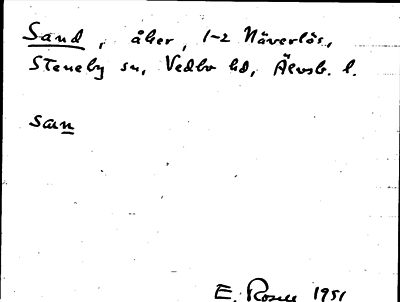 Sand, åker, 1-2 Näverlös,
Steneby sn, Vedbo hd, Älvsb. l.
san
E. Rosell 1951